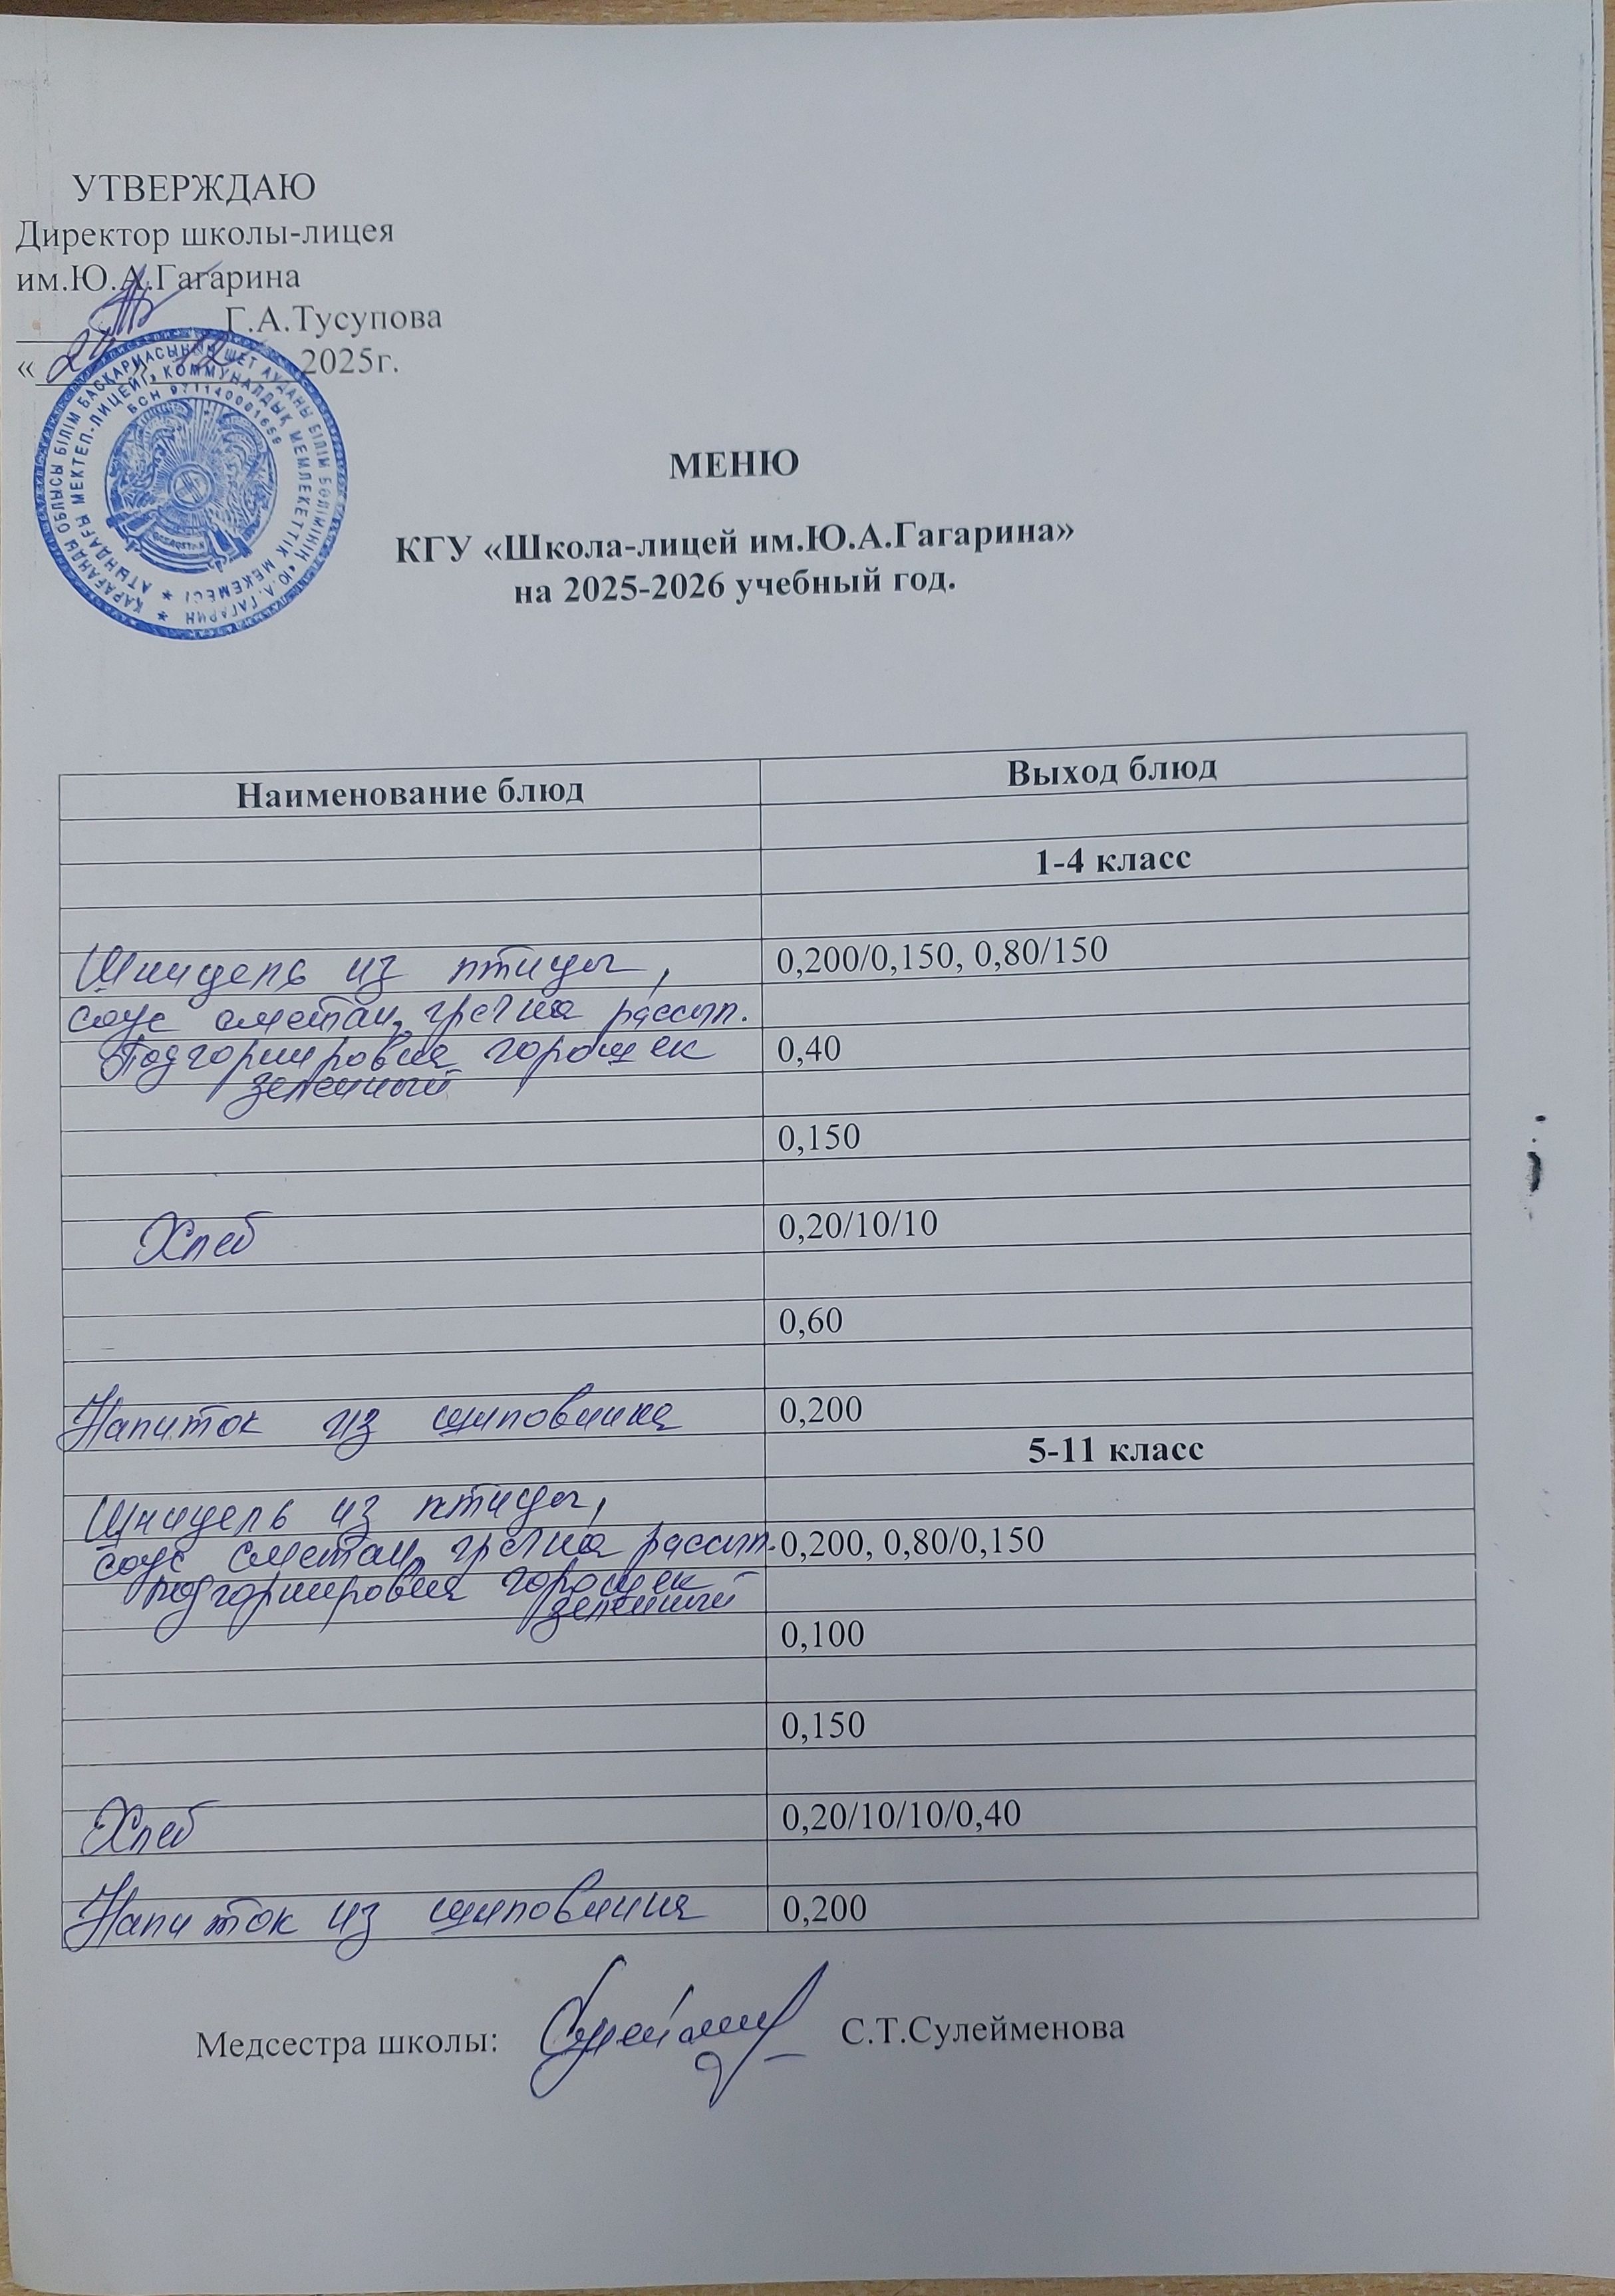 УТВЕРЖДАЮ
Директор школы-лицея
им.Ю.А.Гагарина
Г.А.Тусупова
« 24 12 2025г.
ҚАРАҒАНДЫ ОБЛЫСЫ БІЛІМ БАСҚАРМАСЫНЫҢ ШЕТ АУДАНЫ БІЛІМ БӨЛІМІНІҢ «Ю.А. ГАГАРИН
АТЫНДАҒЫ МЕКТЕП-ЛИЦЕЙІ» КОММУНАЛДЫҚ МЕМЛЕКЕТТІК МЕКЕМЕСІ
БСН 971140001659
QAZAQSTAN
МЕНЮ
КГУ «Школа-лицей им.Ю.А.Гагарина»
на 2025-2026 учебный год.
Наименование блюд Выход блюд
1-4 класс
Шницель из птицы, 0,200/0,150, 0,80/150
соус сметан, гречка рассып.
Подгорнировка горошек 0,40
зеленный
0,150
Хлеб 0,20/10/10
0,60
Напиток из шиповника 0,200
5-11 класс
Шницель из птицы,
соус сметан, гречка рассып. 0,200, 0,80/0,150
подгорнировка горошек
зеленный
0,100
0,150
Хлеб 0,20/10/10/0,40
Напиток из шиповника 0,200
Медсестра школы: С.Т.Сулейменова